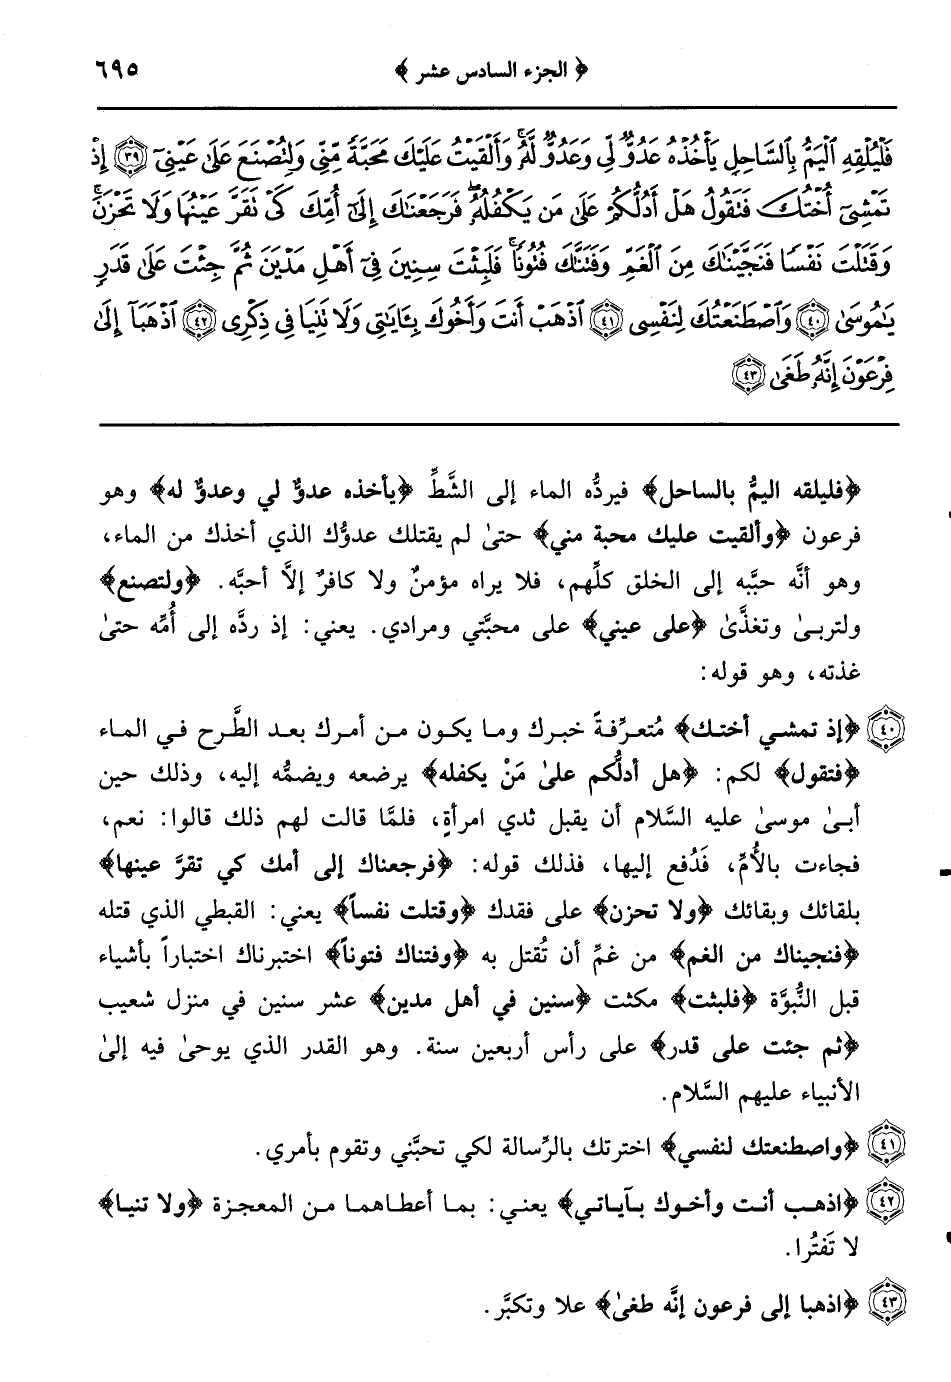 ﴿ الجزء السادس عشر ﴾ ٦٩٥
فَلْيُلْقِهِ ٱلْيَمُّ بِٱلسَّاحِلِ يَأْخُذْهُ عَدُوٌّ لِّي وَعَدُوٌّ لَّهُۥ ۚ وَأَلْقَيْتُ عَلَيْكَ مَحَبَّةً مِّنِّي وَلِتُصْنَعَ عَلَىٰ عَيْنِيٓ ﴿٣٩﴾ إِذْ
تَمْشِيٓ أُخْتُكَ فَتَقُولُ هَلْ أَدُلُّكُمْ عَلَىٰ مَن يَكْفُلُهُۥ ۖ فَرَجَعْنَٰكَ إِلَىٰٓ أُمِّكَ كَىْ تَقَرَّ عَيْنُهَا وَلَا تَحْزَنَ ۚ
وَقَتَلْتَ نَفْسًا فَنَجَّيْنَٰكَ مِنَ ٱلْغَمِّ وَفَتَنَّٰكَ فُتُونًا ۚ فَلَبِثْتَ سِنِينَ فِيٓ أَهْلِ مَدْيَنَ ثُمَّ جِئْتَ عَلَىٰ قَدَرٍ
يَٰمُوسَىٰ ﴿٤٠﴾ وَٱصْطَنَعْتُكَ لِنَفْسِي ﴿٤١﴾ ٱذْهَبْ أَنتَ وَأَخُوكَ بِـَٔايَٰتِي وَلَا تَنِيَا فِي ذِكْرِي ﴿٤٢﴾ ٱذْهَبَآ إِلَىٰ
فِرْعَوْنَ إِنَّهُۥ طَغَىٰ ﴿٤٣﴾
﴿فليلقه اليمُّ بالساحل﴾ فيردُّه الماء إلى الشَّطِّ ﴿يأخذه عدوٌّ لي وعدوٌّ له﴾ وهو
فرعون ﴿وألقيت عليك محبة مني﴾ حتىٰ لم يقتلك عدوُّك الذي أخذك من الماء،
وهو أنَّه حبَّبه إلى الخلق كلِّهم، فلا يراه مؤمنٌ ولا كافرٌ إلاَّ أحبَّه. ﴿ولتصنع﴾
ولتربىٰ وتغذَّىٰ ﴿على عيني﴾ على محبَّتي ومرادي. يعني: إذ ردَّه إلى أُمِّه حتىٰ
غذته، وهو قوله:
٤٠ ﴿إذ تمشي أختك﴾ مُتعرِّفةً خبرك وما يكون من أمرك بعد الطَّرح في الماء
﴿فتقول﴾ لكم: ﴿هل أدلُّكم علىٰ مَنْ يكفله﴾ يرضعه ويضمُّه إليه، وذلك حين
أبىٰ موسىٰ عليه السَّلام أن يقبل ثدي امرأةٍ، فلمَّا قالت لهم ذلك قالوا: نعم،
فجاءت بالأُمِّ، فَدُفع إليها، فذلك قوله: ﴿فرجعناك إلى أمك كي تقرَّ عينها﴾
بلقائك وبقائك ﴿ولا تحزن﴾ على فقدك ﴿وقتلت نفساً﴾ يعني: القبطي الذي قتله
﴿فنجيناك من الغم﴾ من غمِّ أن تُقتل به ﴿وفتناك فتوناً﴾ اختبرناك اختباراً بأشياء
قبل النُّبوَّة ﴿فلبثت﴾ مكثت ﴿سنين في أهل مدين﴾ عشر سنين في منزل شعيب
﴿ثم جئت على قدر﴾ على رأس أربعين سنة. وهو القدر الذي يوحىٰ فيه إلىٰ
الأنبياء عليهم السَّلام.
٤١ ﴿واصطنعتك لنفسي﴾ اخترتك بالرِّسالة لكي تحبَّني وتقوم بأمري.
٤٢ ﴿اذهب أنت وأخوك بآياتي﴾ يعني: بما أعطاهما من المعجزة ﴿ولا تنيا﴾
لا تَفتُرا.
٤٣ ﴿اذهبا إلى فرعون إنَّه طغىٰ﴾ علا وتكبَّر.